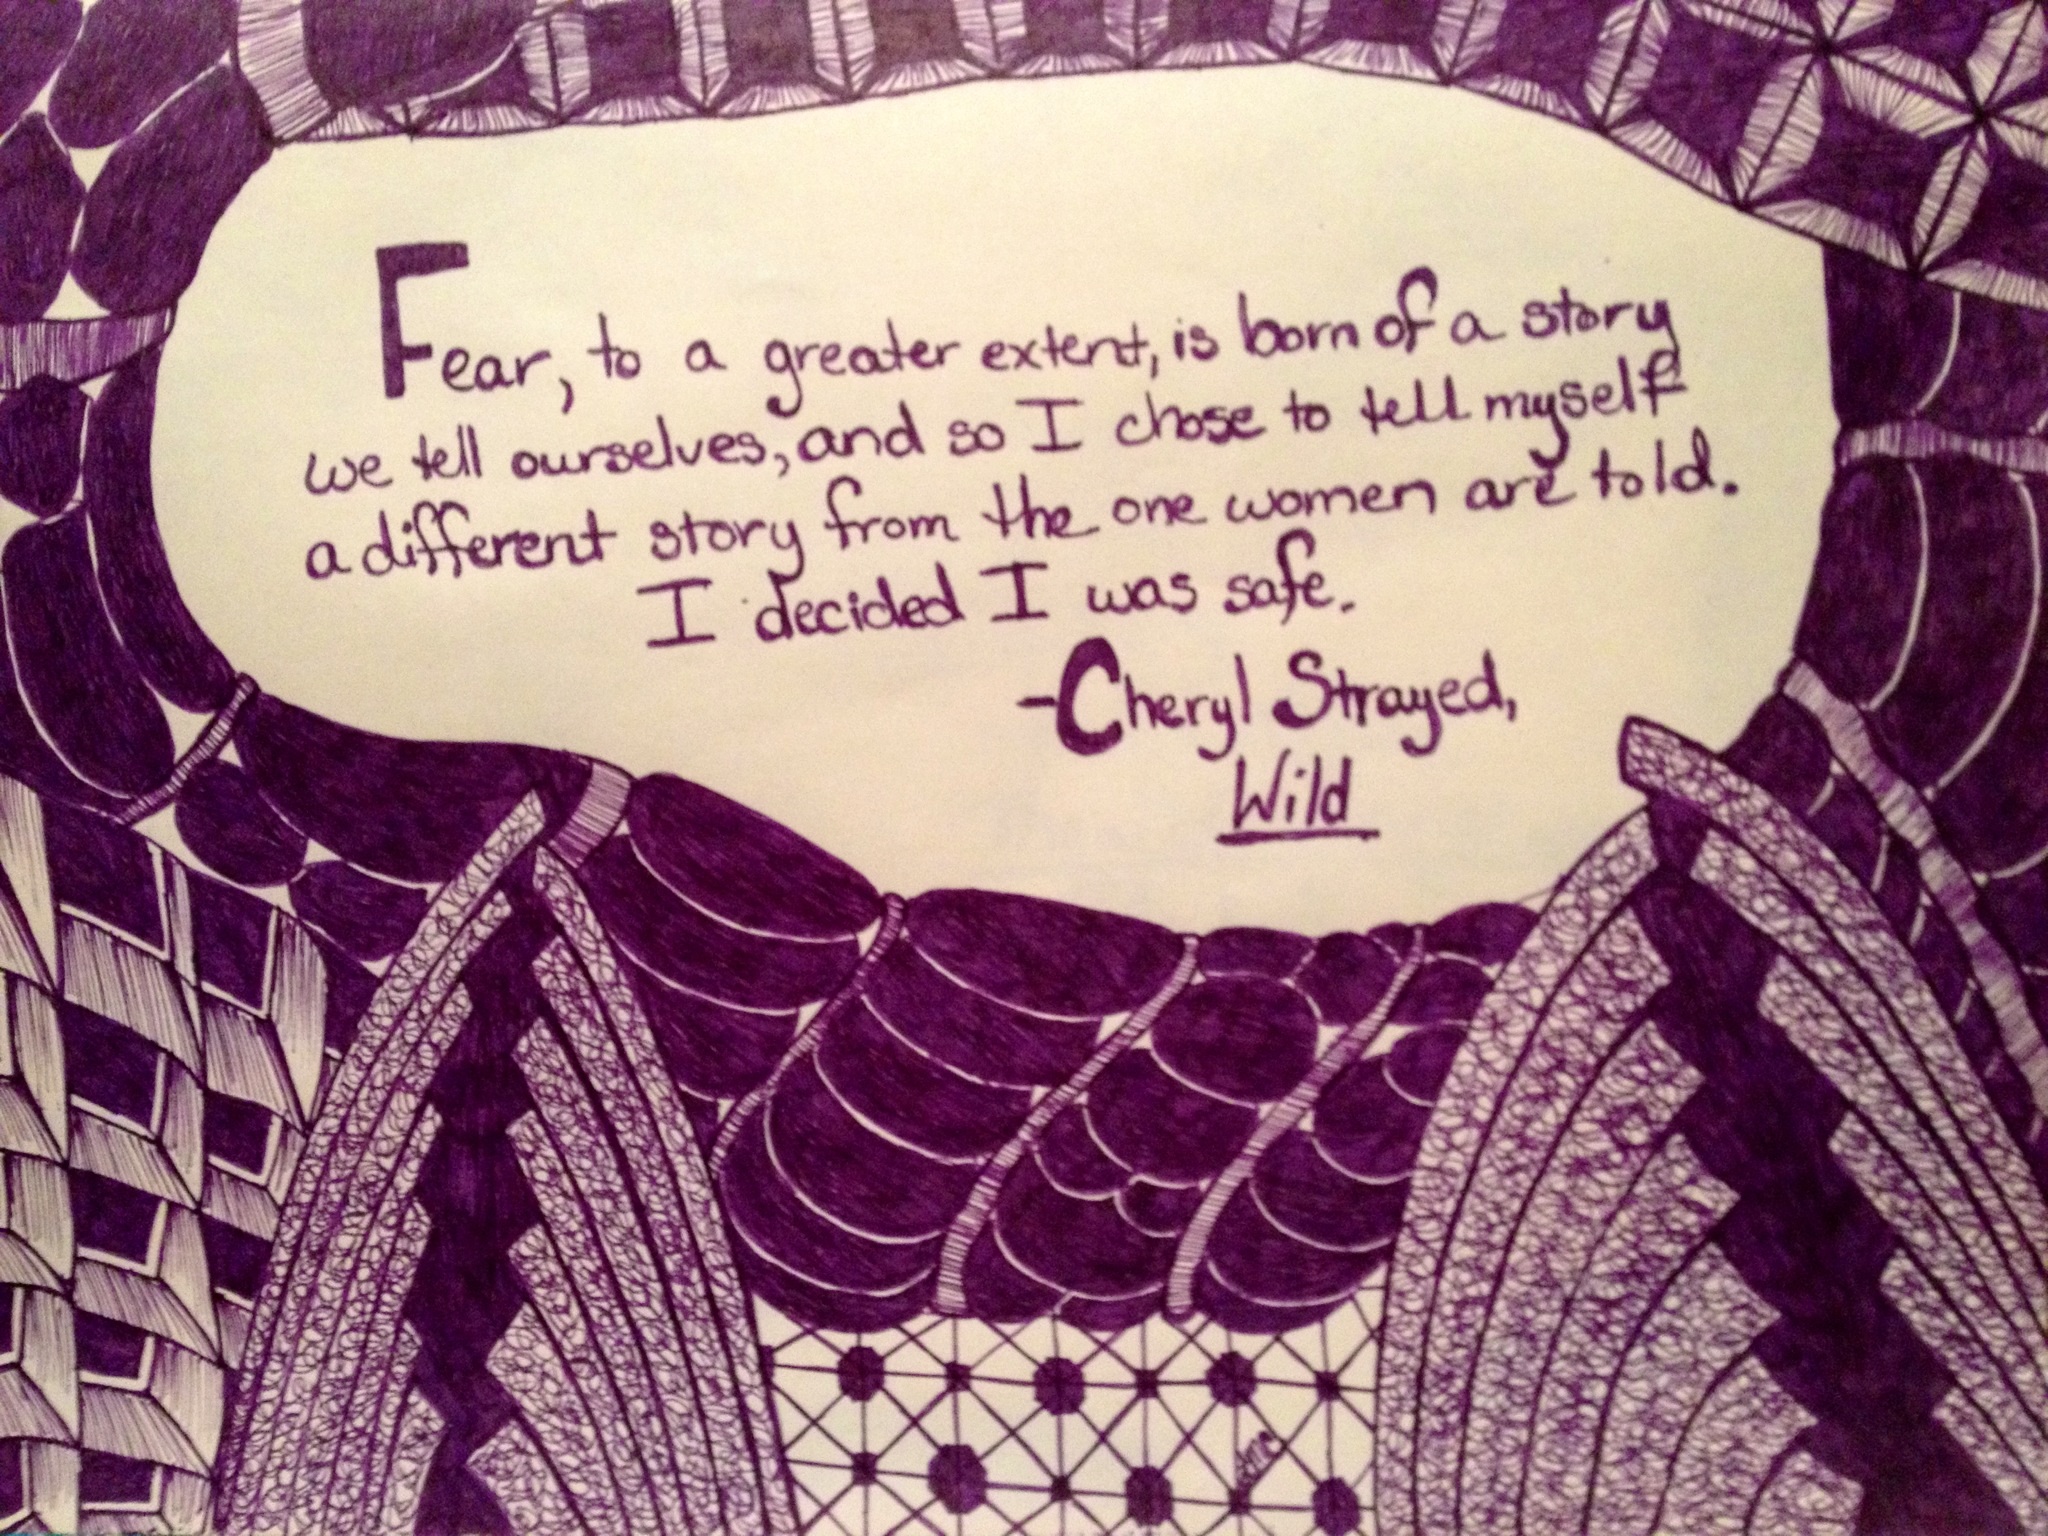 Fear, to a greater extent, is born of a story
we tell ourselves, and so I chose to tell myself
a different story from the one women are told.
I decided I was safe.
-Cheryl Strayed,
Wild